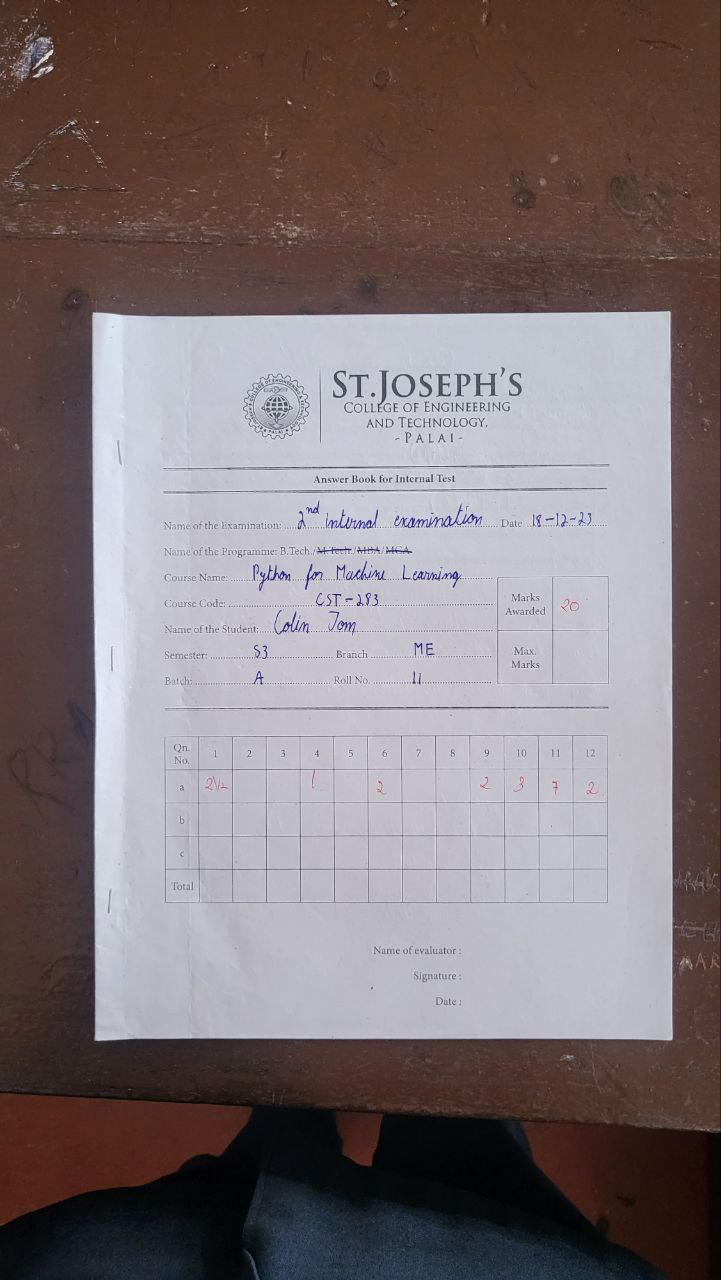 ST.JOSEPH'S
COLLEGE OF ENGINEERING
AND TECHNOLOGY,
- PALAI -
Answer Book for Internal Test
Name of the Examination: 2nd internal examination Date 18-12-23
Name of the Programme: B.Tech./M.Tech./MBA/MCA
Course Name: Python for Machine Learning
Course Code: CST-283
Marks Awarded 20
Name of the Student: Colin Tom
Semester: S3 Branch ME
Max. Marks
Batch: A Roll No. 11
Qn. No. 1 2 3 4 5 6 7 8 9 10 11 12
a 2 1/2 1 2 2 3 7 2
b
c
Total
Name of evaluator :
Signature :
Date :